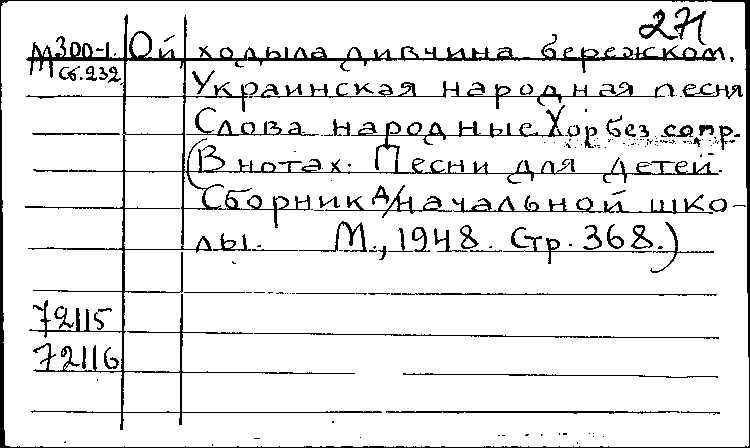 271
М300-1. Ой, ходыла дивчина бережком.
Сб.232 Украинская народная песня
Слова народные. Хор без сопр.
(В нотах: Песни для детей.
Сборник д/начальной шко-
лы. М., 1948. Стр. 368.)
72115
72116